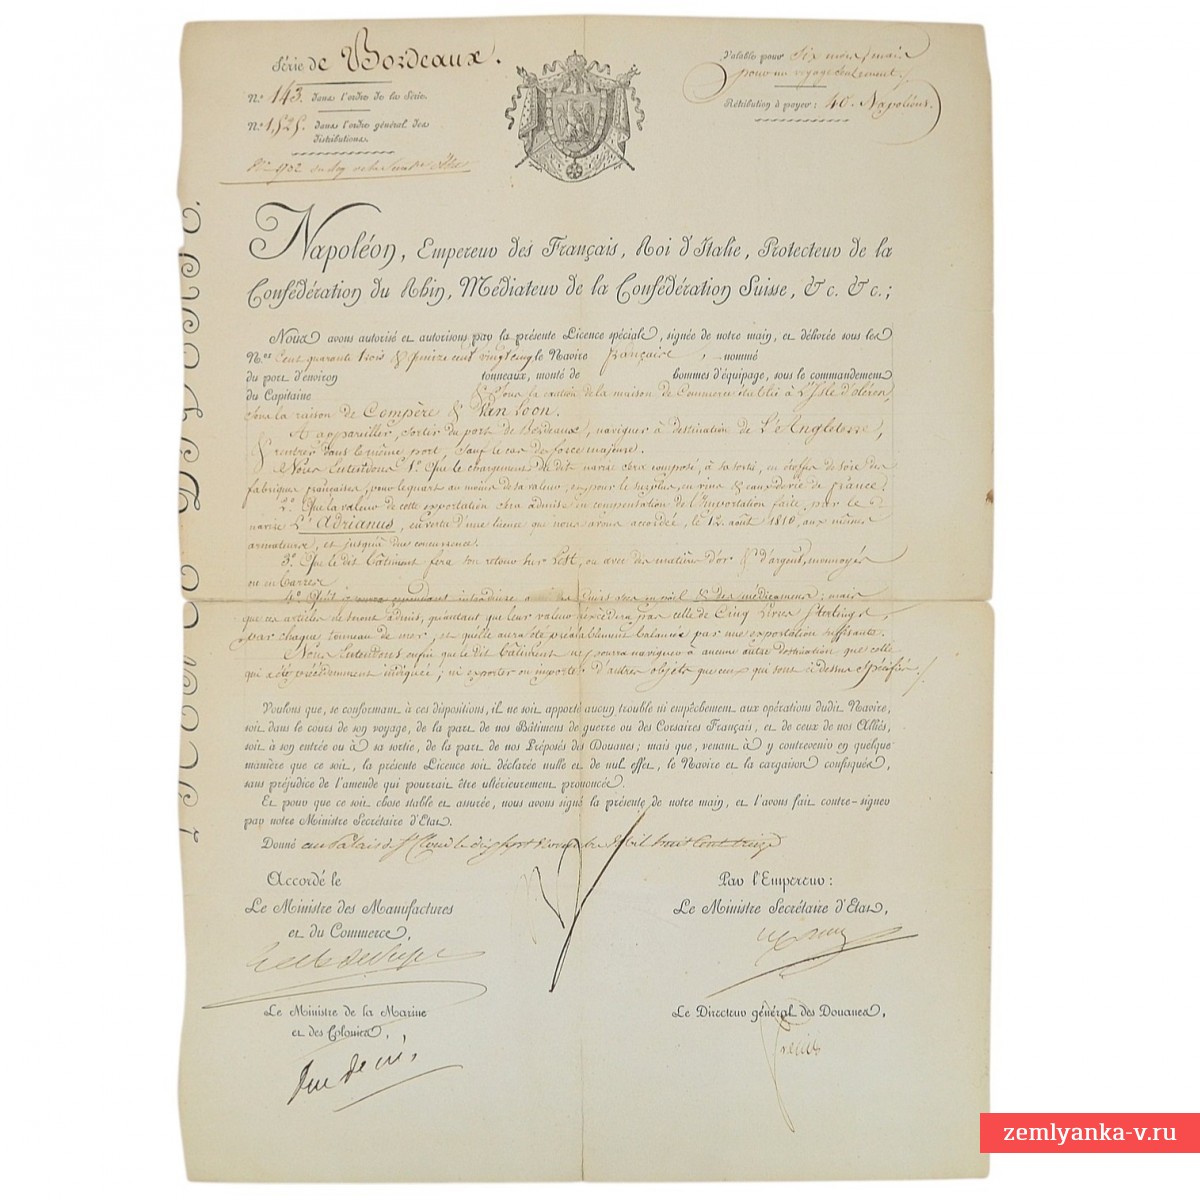 Série de Bordeaux.
N.º 143. dans l'ordre de la Série.
N.º 1,525. dans l'ordre général des
distributions.
Valable pour Six mois, mais
pour un voyage seulement.
Rétribution à payer: 40. Napoléons.
Napoléon, Empereur des Français, Roi d'Italie, Protecteur de la
Confédération du Rhin, Médiateur de la Confédération Suisse, &c. &c.;
Nous avons autorisé et autorisons par la présente Licence spéciale, signée de notre main, et délivrée sous les
N.os Cent quarante trois & quinze cent vingt cinq le Navire française, nommé
du port d'environ tonneaux, monté de hommes d'équipage, sous le commandement
du Capitaine & sous la caution de la maison de Commerce établie à L'Isle d'oléron,
sous la raison de Compère & Van Loon.
A appareiller, sortir du port de Bordeaux, naviguer à destination de L'Angleterre,
& rentrer dans le même port, sauf le cas de force majeure.
Nous Entendons 1.º Que le chargement du dit navire sera composé, à sa sortie, en étoffes de soie des
fabriques françaises, pour le quart au moins de sa valeur; en, pour le surplus, en vins & eaux de vie de france;
2.º Que la valeur de cette exportation sera admise en compensation de l'importation faite par le
navire L'Adrianus, en vertu d'une licence que nous avons accordée, le 12. août 1810, aux mêmes
armateurs, et jusqu'à due concurrence.
3.º Que le dit bâtiment fera son retour sur Lest, ou avec des matières d'or & d'argent, monnoyés
ou en barres
4.º introduire & des médicamens; mais
que ces articles ne seront admis, qu'autant que leur valeur n'excèdera pas celle de Cinq Livres Sterlings
par chaque tonneau de mer, et qu'elle aura été préalablement balancée par une exportation suffisante.
Nous Entendons enfin que le dit bâtiment ne pourra naviguer à aucune autre destination que celle
qui a été précédemment indiquée; ni exporter ou importer d'autres objets que ceux qui sont ci dessus spécifiés.
Voulons que, se conformant à ces dispositions, il ne soit apporté aucun trouble ni empêchement aux opérations dudit Navire,
soit dans le cours de son voyage, de la part de nos Bâtimens de guerre ou des Corsaires Français, et de ceux de nos Alliés,
soit à son entrée ou à sa sortie, de la part de nos Préposés des Douanes; mais que, venant à y contrevenir en quelque
manière que ce soit, la présente Licence soit déclarée nulle et de nul effet, le Navire et la cargaison confisqués,
sans préjudice de l'amende qui pourrait être ultérieurement prononcée.
Et pour que ce soit chose stable et assurée, nous avons signé la présente de notre main, et l'avons fait contre-signer
par notre Ministre Secrétaire d'Etat.
Donné au Palais de St Cloud le dix sept Novembre mil huit cent treize
Accordé le
Le Ministre des Manufactures
et du Commerce,
Par l'Empereur:
Le Ministre Secrétaire d'Etat,
Le Ministre de la Marine
et des Colonies,
Le Directeur général des Douanes,
zemlyanka-v.ru